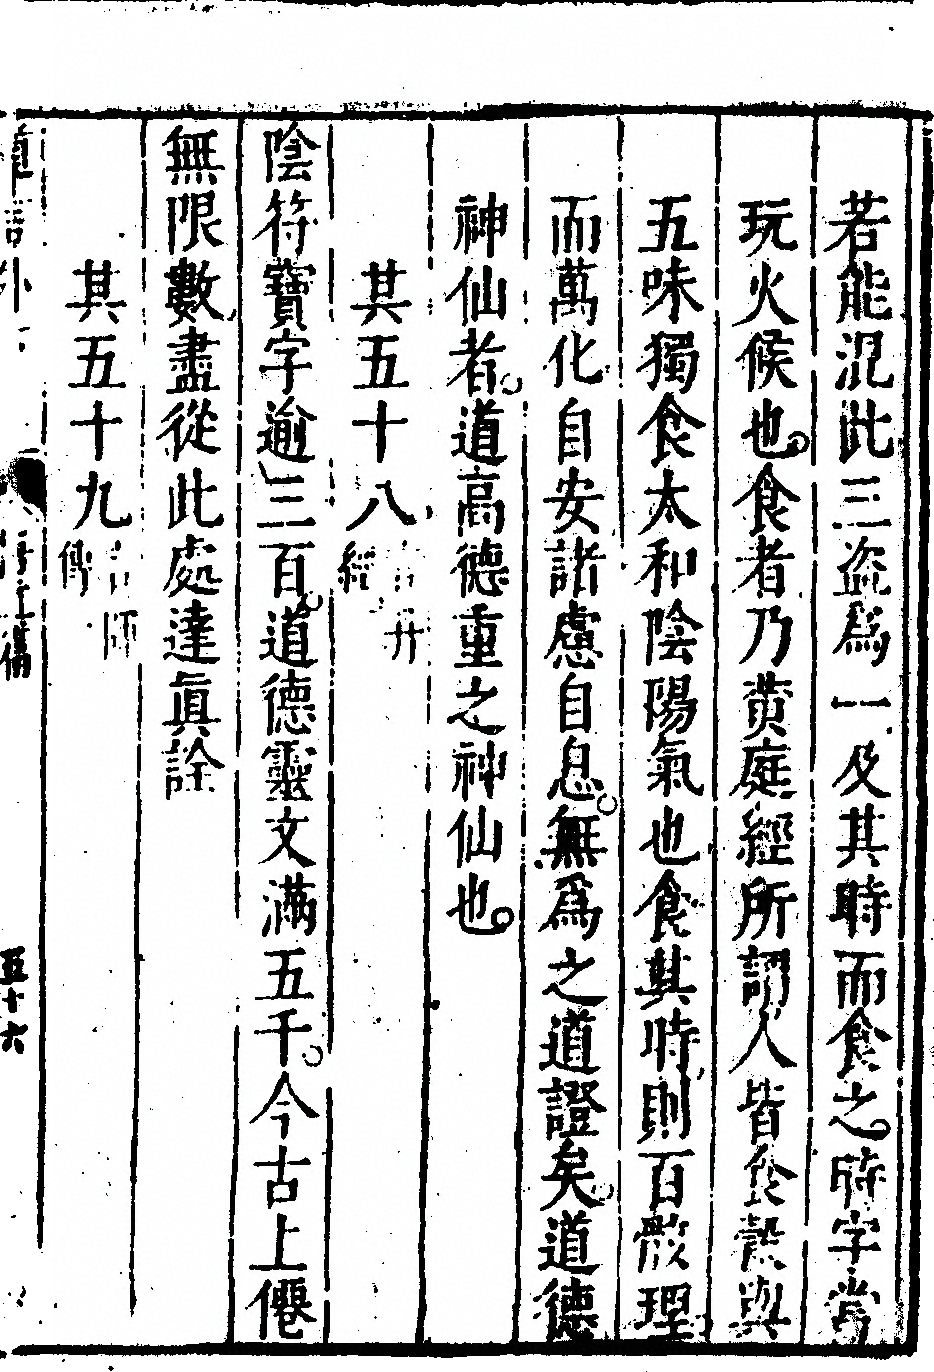 若能混此三盜為一及其時而食之時字當
玩火候也食者乃黄庭經所謂人皆食穀與
五味獨食太和陰陽氣也食其時則百骸理
而萬化自安諸慮自息無為之道證矣道德
神仙者道高德重之神仙也
其五十八
經
陰符寶字逾三百道德靈文滿五千今古上僊
無限數盡從此處達眞詮
其五十九
師
傳
五十六